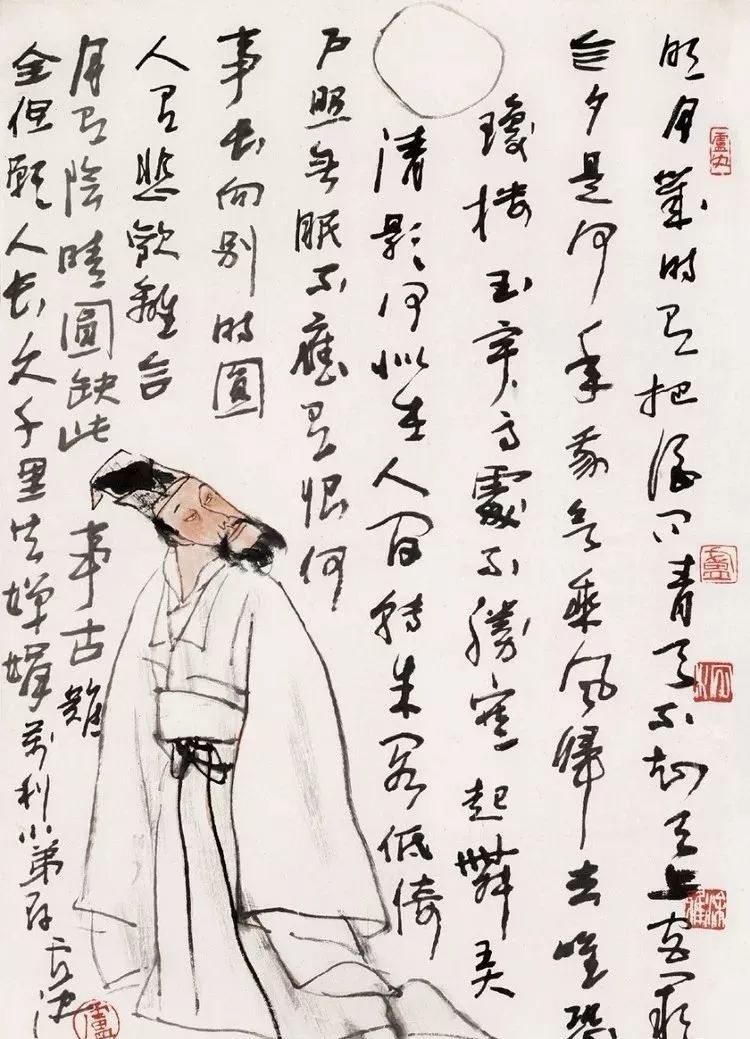 明月幾時有把酒问青天不知天上宫阙
今夕是何年我欲乘风歸去唯恐
瓊樓玉宇高處不勝寒起舞弄
清影何似在人间轉朱阁低倚
户照無眠不應有恨何
事長向别時圓
人有悲歡離合
月有陰晴圓缺此事古難
全但願人長久千里共嬋娟萬利小弟存
盧沉
盧